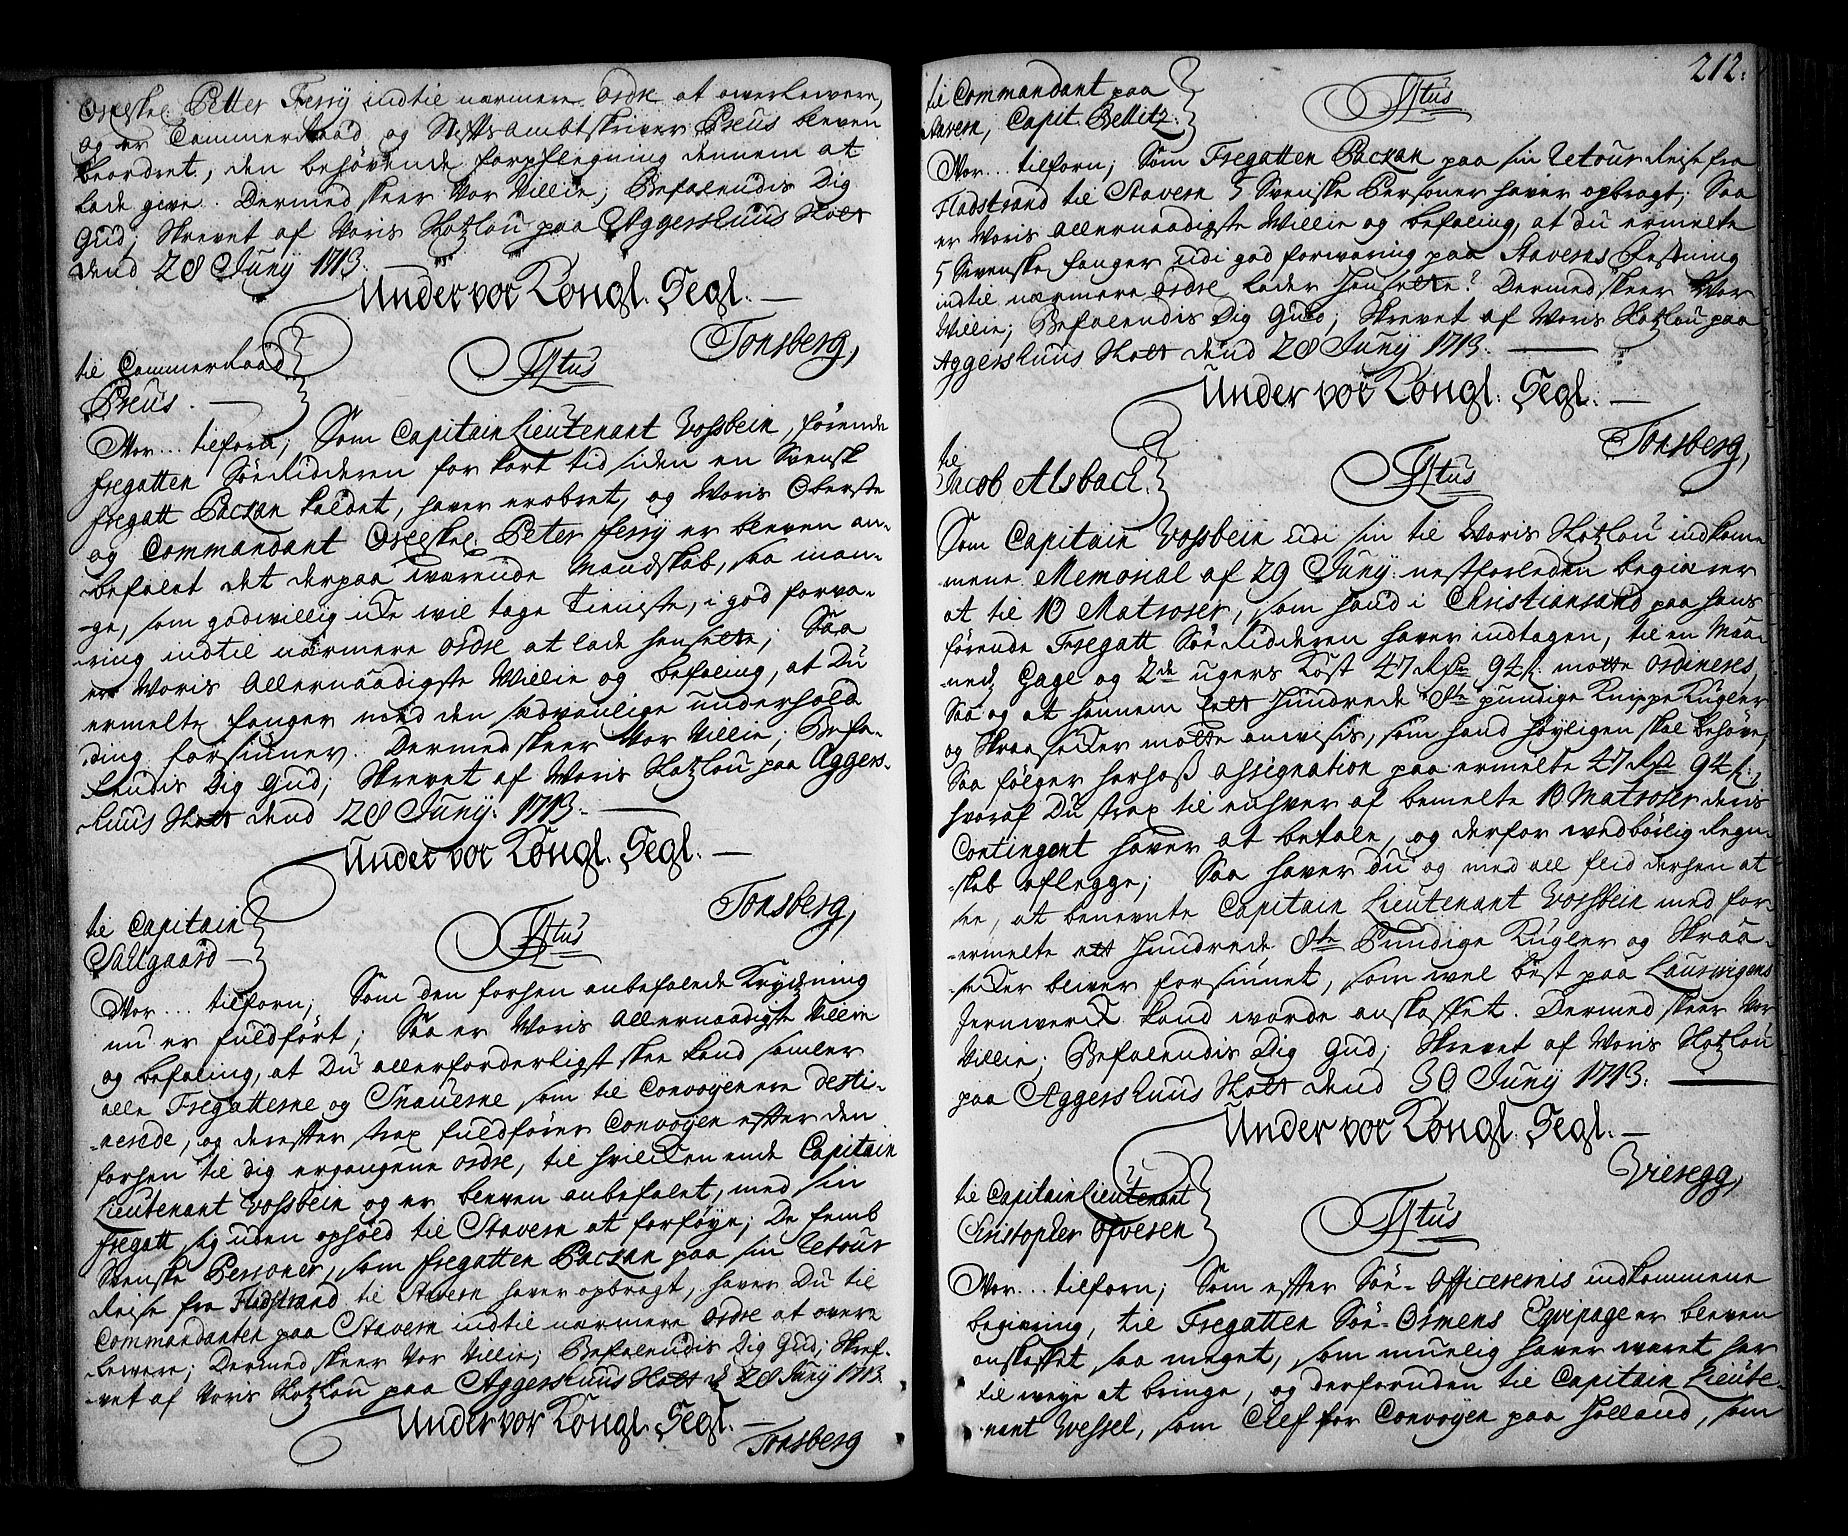 Oveskl. Petter Ferry indtil nærmere Ordre at overlevere,
og er Commerraad og Stiftsambtskriver Preus bleven
beordret, den behøvende forpflegning dennem at
lade give. Dermed skeer Vor Villie; Befalendis Dig
Gud; Skrevet af Voris Slotzlou paa Aggershuus Slott
dend 28 Junij 1713.
Under vor Kongl. Segl.
Tonsberg,
til Commerraad
Preus.
F4tus
Vor... tilforn; Som Capitain Lieutenant Vossbein, førende
fregatten SøeRidderen for kort tid siden en Svensk
fregatt Packan kaldet, haver erobret, og Voris Oberste
og Commandant Oveskl. Peter ferry er bleven an-
befalet det derpaa værende Mandskab, saa man-
-ge, som godvillig icke vil tage Tieniste, i god forva-
ring indtil nærmere Ordre at lade hensette; Saa
er Voris Allernaadigste Villie og befaling, at Du
ermelte fanger med den sædvanlige underhold-
ding forsiuner. Dermed skeer Vor Villie; Befa-
lendis Dig Gud; Skrevet af Voris Slotzlou paa Aggers-
huus Slott dend 28 Junij. 1713.
Under vor Kongl. Segl.
Tonsberg,
til Capitain
Sallgaard
F4tus
Vor... tilforn; Som den forhen anbefalede Krydzning
nu er fuldført; Saa er Voris Allernaadigste Villie
og befaling, at Du allerforderligst skee kand samler
alle Fregatterne og Snauerne som til Convoyen ere desti-
-nerede, og derefter strax fuldfører Convoyen efter den
forhen til dig ergangene ordre, til hvilcken ende Capitain
Lieutenant Vossbein og er bleven anbefalet, med sin
fregatt sig uden ophold til Stavern at forføye; De femb
Svenske Personer, som fregatten Packan paa sin Retour
Reise fra Fladstrand til Stavern haver opbragt, haver Du til
Commandanten paa Stavern indtil nærmere Ordre at over-
levere; Dermed skeer Vor Villie; Befalendis Dig Gud; Skref-
vet af Voris Slotzlou paa Aggershuus Slott d 28 Junij 1713.
Under vor Kongl. Segl.
Tonsberg
212.
til Commandant paa
Stavern, Capit. Bellitz.
F4tus
Vor... tilforn; Som Fregatten Packan paa sin Retour Reise fra
Fladstrand til Stavern 5 Svenske Personer haver opbragt; Saa
er Voris Allernaadigste Villie og befaling, at Du ermelte
5 Svenske fanger udi god forvaring paa Staverns Festning
indtil nærmere ordre lader hensette? Dermed skeer Vor
Villie; Befalendis Dig Gud; Skrevet af Voris Slotzlou paa
Aggershuus Slott dend 28 Junij 1713.
Under vor Kongl. Segl.
Tonsberg,
til
Jacob Alsbach.
F4tus
Som Capitain Vossbein udi sin til Voris Slotzlou indkom-
mene Memorial af 29 Junij nestforleden begiærer
at til 10 Matroser, som hand i Christiansand paa hans
førende Fregatt SøeRidderen haver indtagen, til en Maa-
ned Gage og 2de ugers Kost 47 Rdr 94 s. motte ordineres,
Saa og at hannem et hundrede 8te pundige KnippeKugler
og Skraasecker motte anvisis, som hand høyligen skal behøve,
Saa følger herhoss assignation paa ermelte 47 Rdr 94 s.,
hvoraf Du strax til enhver af bemelte 10 Matroser deris
Contingent haver at betale, og derfor wedbørlig Regn-
-skab aflegge; Saa haver du og med all flid derhen at
see, at benevnte Capitain Lieutenant Vossbein med for-
-ermelte ett hundrede 8te Pundige Kugler og Skraa-
secker bliver forsiunet, som vel best paa Laurvigens
Jernwerck kand vorde anskaffet. Dermed skeer Vor
Villie; Befalendis Dig Gud; Skrevet af Voris Slotzlou
paa Aggershuus Slott dend 30 Junij 1713.
Under vor Kongl. Segl.
Vieregg,
til Capitain Lieutenant
Christopher Ofvesen
F4tus
Vor... tilforn; Som efter Søe-Officerernis indkommene
begiering, til Fregatten Søe-Ormens Eqvipage er bleven
anskaffet saa meget, som muelig haver været her
til veye at bringe, og derforuden til Capitain Lieute-
nant Wessel, som Chef for Convoyen paa Holland, som